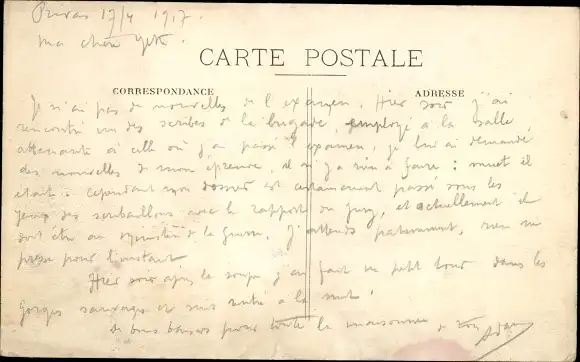 Privas 17/4 1917.
Ma chère Yette.
CARTE POSTALE
CORRESPONDANCE
ADRESSE
Je n'ai pas de nouvelles de l'examen. Hier soir j'ai
rencontré un des scribes de la brigade, employé à la salle
attenante à celle où j'ai passé l'examen, je lui ai demandé
des nouvelles de mon épreuve, il n'y a rien à faire : muet il
était. Cependant mon dossier est certainement passé sous les
yeux des avec le rapport du jury, et actuellement il
doit être au ministère de la guerre. J'attends patiemment, rien ne
presse pour l'instant
Hier soir après la soupe j'ai fait un petit tour dans les
Gorges sauvages et suis rentré à la nuit.
De bons baisers pour toute la maisonnée